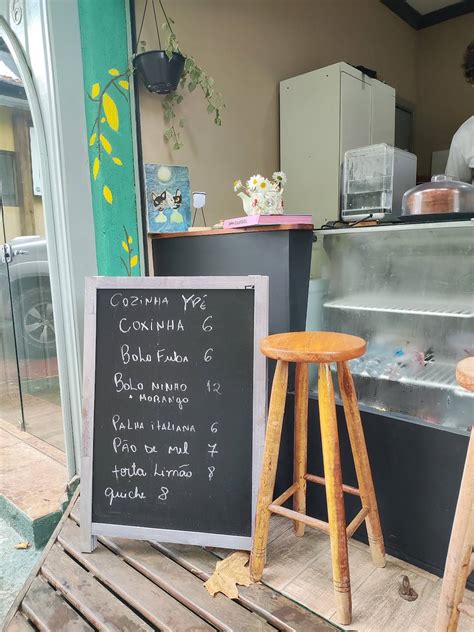 COZINHA YPÊ
COXINHA 6
Bolo Fuba 6
Bolo NINHO 12
+ MORANGO
PALHA ITALIANA 6
PÃO DE MEL 7
torta Limão 8
quiche 8